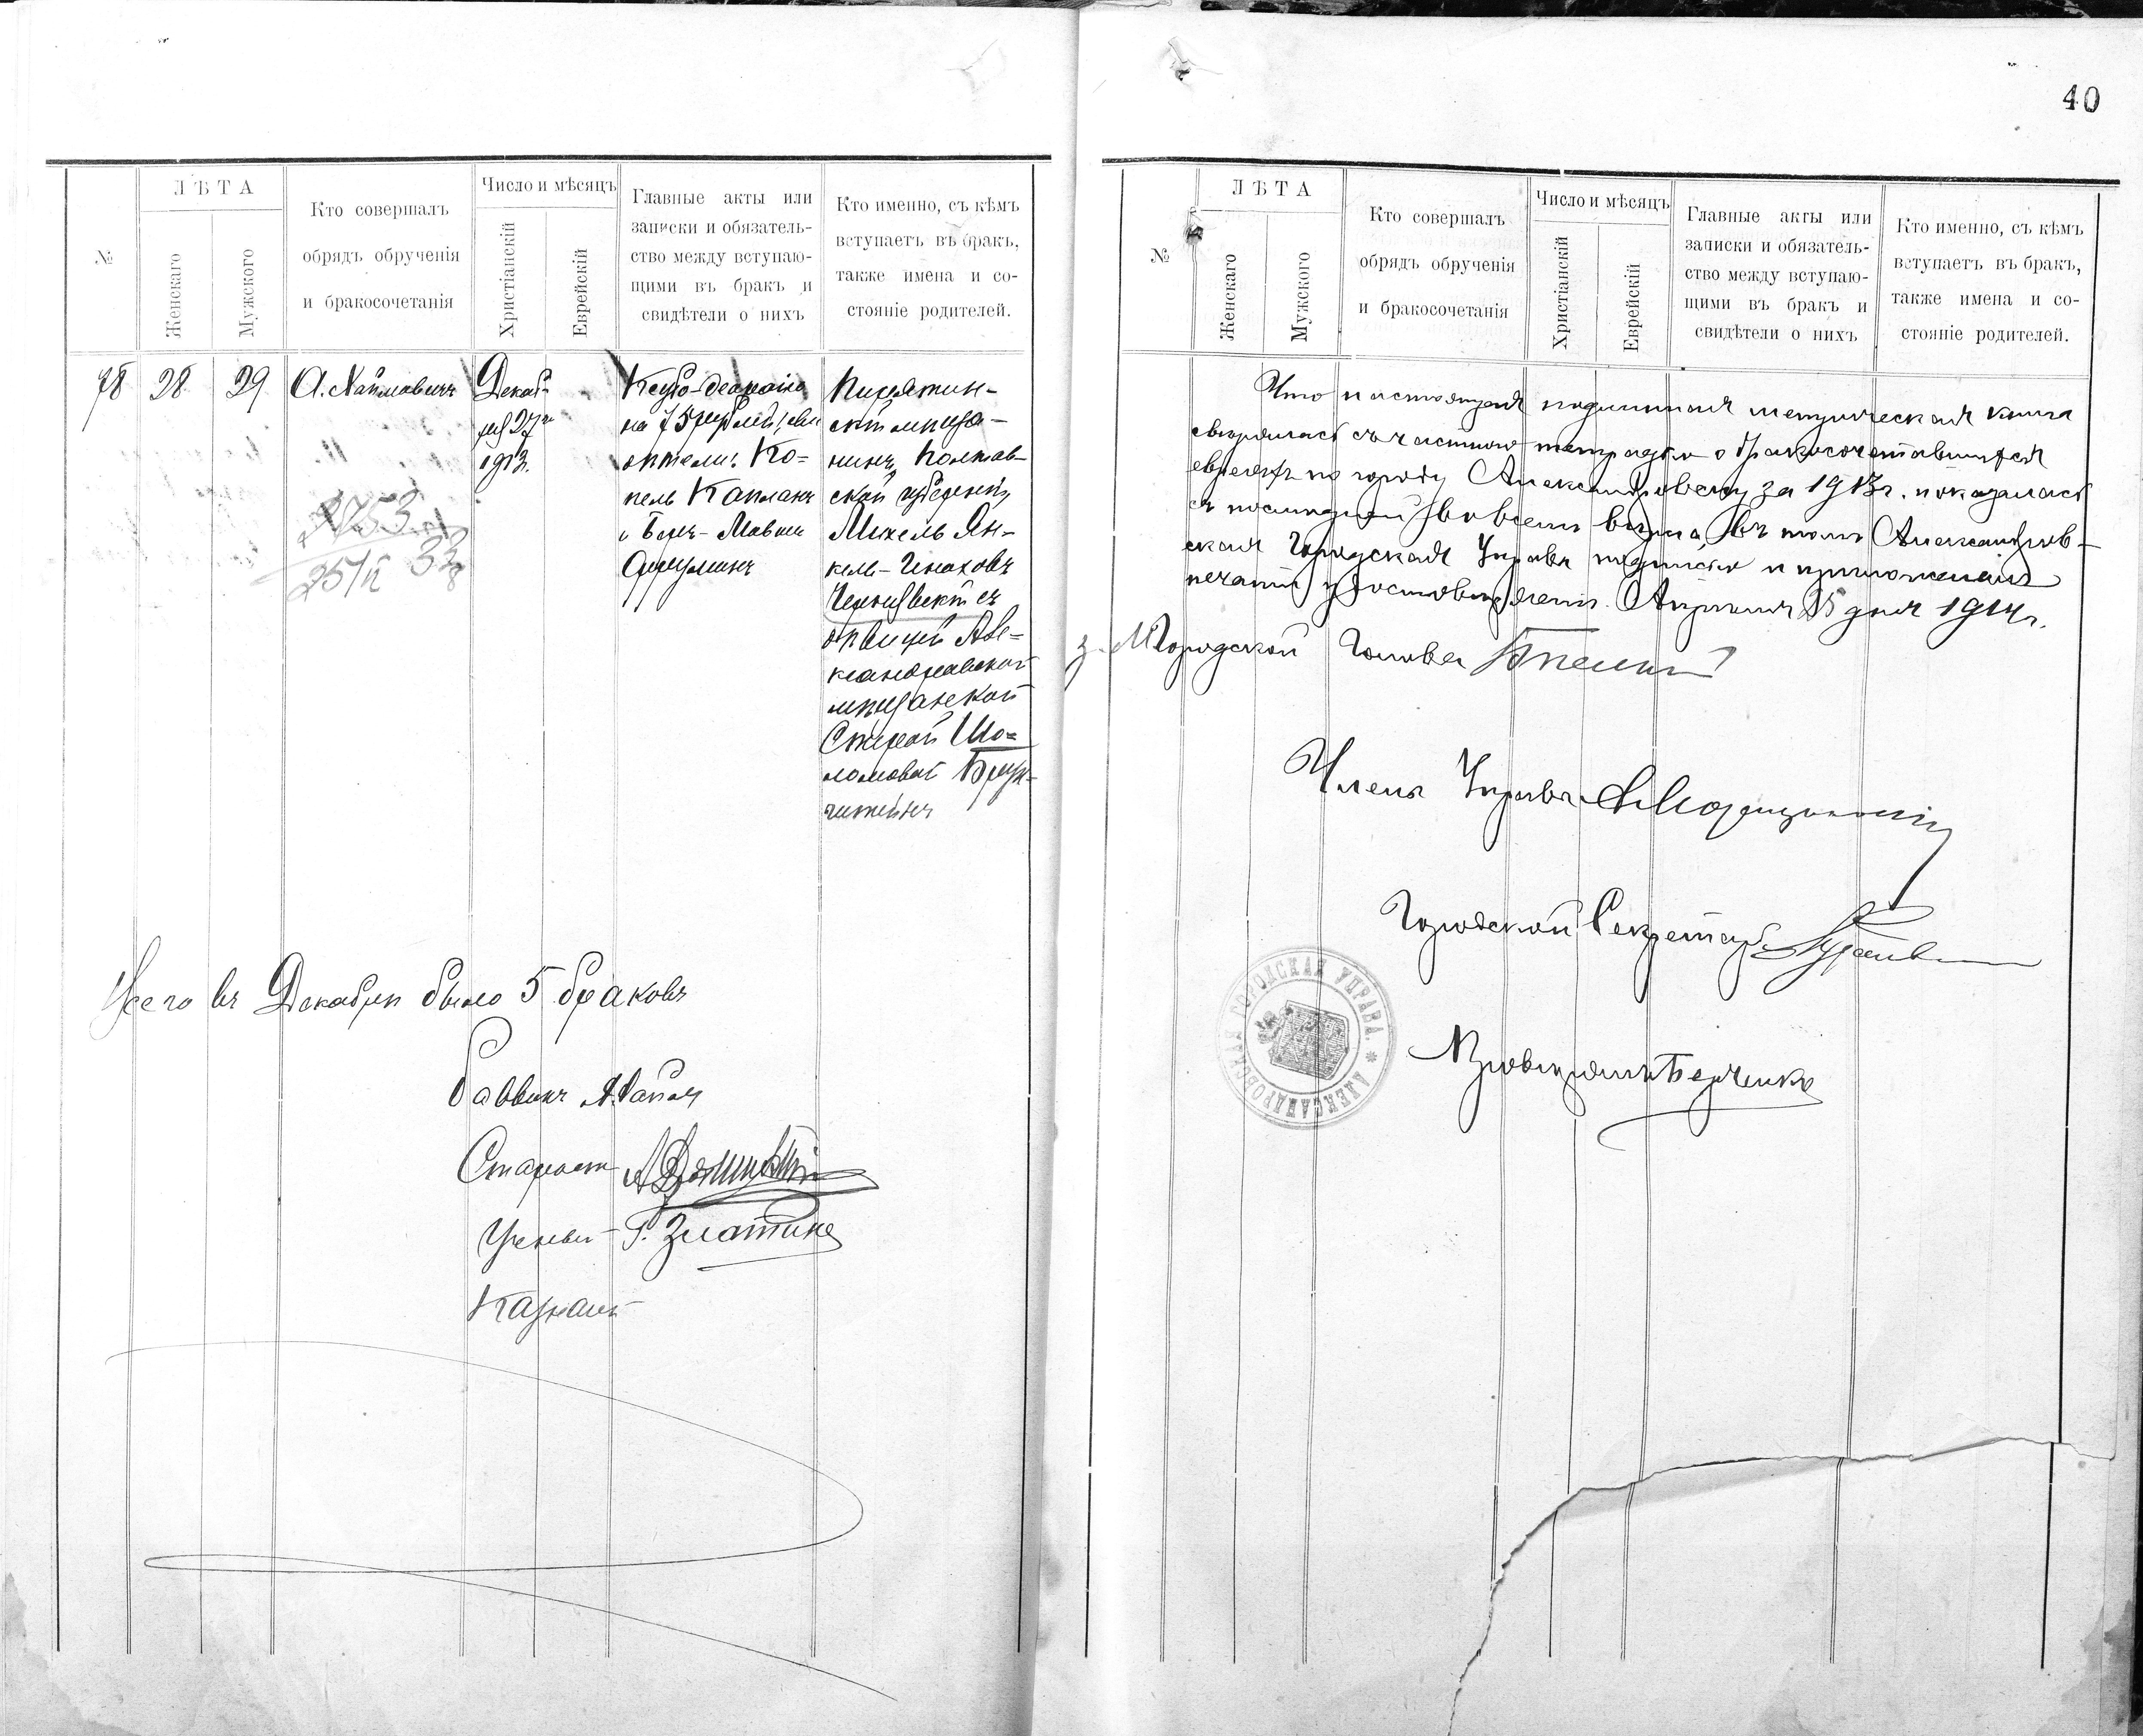 40
№
ЛѢТА
Женскаго
Мужского
Кто совершалъ
обрядъ обрученія
и бракосочетанія
Число и мѣсяцъ
Христіанскій
Еврейскій
Главные акты или
записки и обязатель-
ство между вступаю-
щими въ бракъ и
свидѣтели о нихъ
Кто именно, съ кѣмъ
вступаетъ въ бракъ,
также имена и со-
стояніе родителей.
78
28
29
А. Хаймовичъ
Декаб-
ря 27го
1913.
на 75 рублей, сви
дѣтели: Ко-
пель Капланъ
и Беръ-
Пирятин-
скій мѣща-
нинъ, Полтав-
ской губерніи,
Михель Ян-
кель-
съ
дѣвицей Але-
ксандровской
мѣщанской
Шо-
ломовой
2753
25/II 33
Всего въ Декабрѣ было 5 браковъ
Раввинъ
Староста
Ученый Г. Златинъ
Казначей
№
ЛѢТА
Женскаго
Мужского
Кто совершалъ
обрядъ обрученія
и бракосочетанія
Число и мѣсяцъ
Христіанскій
Еврейскій
Главные акты или
записки и обязатель-
ство между вступаю-
щими въ бракъ и
свидѣтели о нихъ
Кто именно, съ кѣмъ
вступаетъ въ бракъ,
также имена и со-
стояніе родителей.
Что настоящая подлинная метрическая книга
свѣрялась съ частною тетрадью о бракосочетавшихся
евреяхъ по городу Александровску за 1913 г. и оказалась
съ послѣдней во всемъ вѣрна, въ томъ Александров-
ская Городская Управа подписью и приложеніемъ
печати удостовѣряетъ. Апрѣля 25 дня 1914 г.
Городской Голова
Членъ Управы
Городской Секретарь
АЛЕКСАНДРОВСКАЯ ГОРОДСКАЯ УПРАВА. *